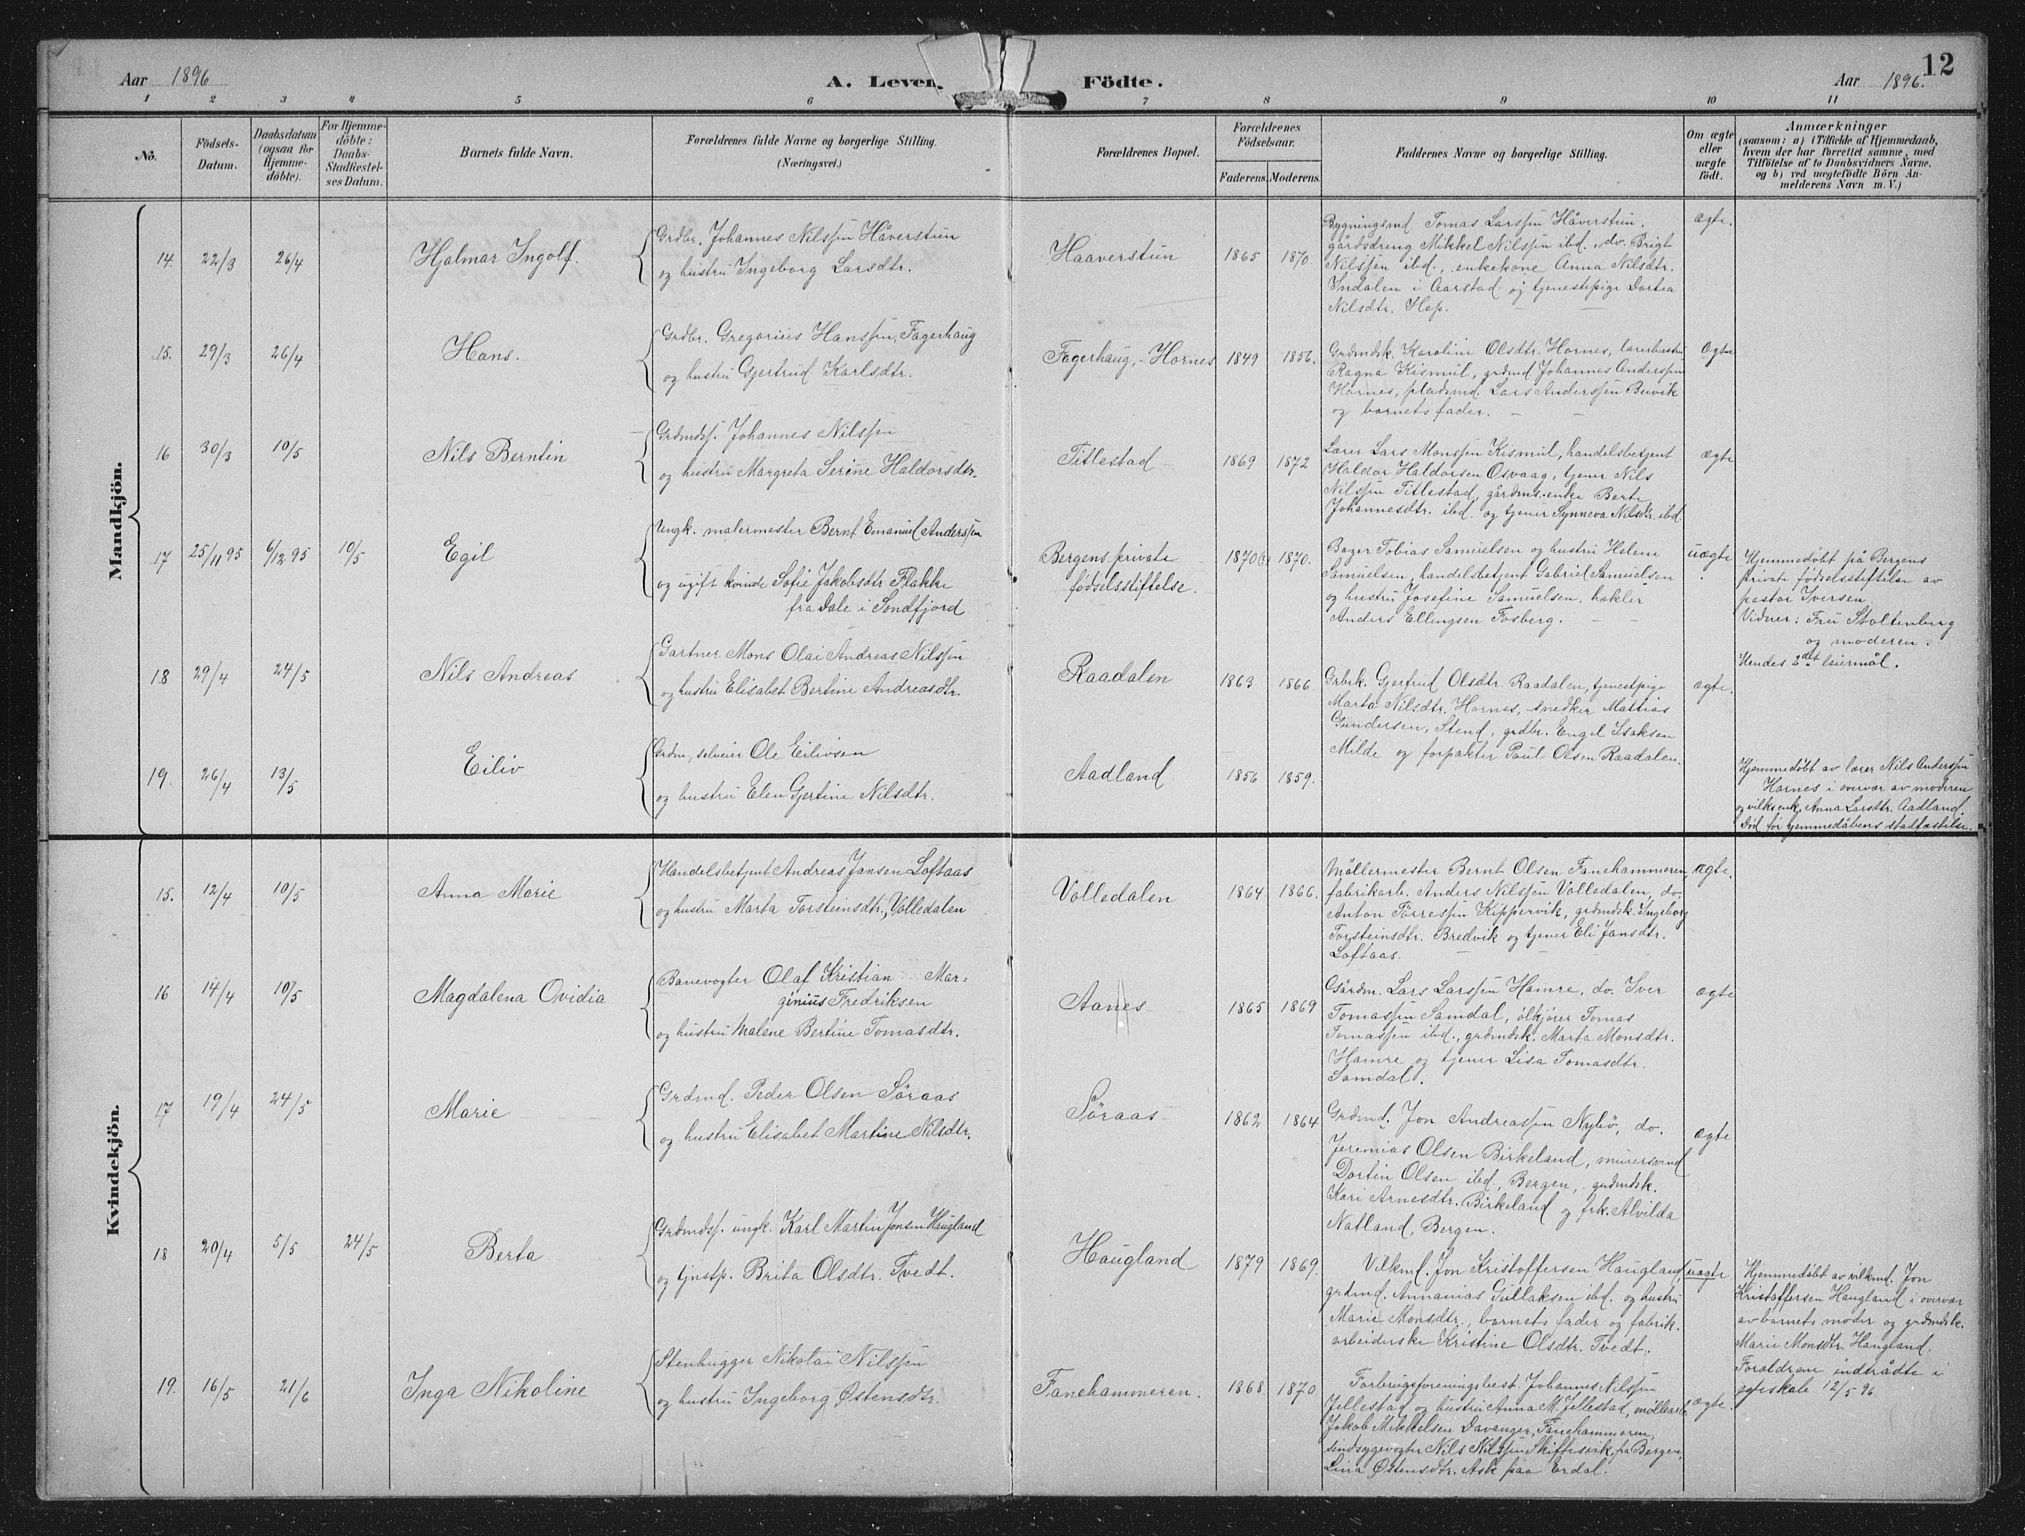 12
Aar 1896
A. Leven
Födte.
Aar 1896.
1 2 3 4 5 6 7 8 9 10 11
No.
Födsels-
Datum.
Daabsdatum
(ogsaa for
Hjemme-
döbte).
For Hjemme-
döbte:
Daabs-
Stadfæstel-
ses Datum.
Barnets fulde Navn.
Forældrenes fulde Navne og borgerlige Stilling.
(Næringsvei.)
Forældrenes Bopæl.
Forældrenes
Födselsaar.
Faderens.
Moderens.
Faddernes Navne og borgerlige Stilling.
Om ægte
eller
uægte
født.
Anmærkninger
(saasom: a) i Tilfælde af Hjemmedaab,
hvem der har forrettet samme, med
Tilföielse af to Daabsvidners Navne,
og b) ved uægtefödte Börn An-
melderens Navn m. V.)
Mandkjön.
14. 22/3 26/4
Hjalmar Ingolf.
Grdbr. Johannes Nilssen Håverstun
og hustru Ingeborg Larsdtr.
Haaverstun
1865 1870.
Bygningsmd Tomas Larssen Håverstun,
gårdsdreng Mikkel Nilssen ibd., do. Brigt
Nilssen ibd., enkekone Anna Nilsdtr.
Indalen i Aarstad og tjenestepige Dortea
Nilsdtr. Hop.
ægte.
15. 29/3 26/4
Hans.
Grdbr. Gregorius Hanssen, Fagerhaug
og hustru Gjertrud Karlsdtr.
Fagerhaug, Hornes
1849 1856.
Grdmdsk. Karoline Olsdtr. Hornes, lærerhustru
Ragna Kismul, grdmd Johannes Anderssen
Hornes, pladsmd. Lars Anderssen Buvik
og barnets fader.
ægte
16 30/3 10/5
Nils Berntin
Grdmdss. Johannes Nilssen
og hustru Margreta Serine Haldorsdtr.
Titlestad
1869 1872
Lærer Lars Monssen Kismul, handelsbetjent
Haldor Haldorsen Osvaag, tjener Nils
Nilssen Titlestad, gårdms. enke Berte
Johannesdtr. ibd. og tjener Synneva Nilsdtr. ibd
ægte
17 25/11 95 6/12 95 10/5
Egil
Ungk. malermester Bernt Emanuel Anderssen
og ugift kvinde Sofie Jakobsdtr Flakke
fra Dale i Søndfjord
Bergens private
fødselsstiftelse.
1870(?) 1870.
Tobias Samuelsen og hustru Helene
Samuelsen, handelsbetjent Gabriel Samuelsen
og hustru Josefine Samuelsen, hakler
Anders Ellingsen Fosberg.
uægte
Hjemmedøbt på Bergens
private fødselsstiftelse av
pastor Iversen
Vidner: Fru Stoltenberg
og moderen.
Hendes 2det leiermål.
18 29/4 24/5
Nils Andreas
Gartner Mons Olai Andreas Nilssen
og hustru Elisabet Bertine Andreasdtr.
Raadalen
1863 1866
Grbrk. Gjertrud Olsdtr. Raadalen, tjenestpige
Marta Nilsdtr. Hornes, snedker Mattias
Gundersen, Stend, grdbr. Engel Isaksen
Milde og forpakter Poul Olsen Raadalen.
ægte.
19. 26/4 13/5
Eiliv
Grdm, selveier Ole Eilivsen
og hustru Elen Gjertine Nilsdtr.
Aadland
1856 1859.
Hjemmedøbt av lærer Nils Anderssen
Hornes i overvær av moderen
og vilksenk. Anna Larsdtr. Aadland.
Død før hjemmedåbens stadfæstelse.
Kvindekjön.
15. 12/4 10/5
Anna Marie
Handelsbetjent Andreas Jansen Loftaas
og hustru Marta Torsteinsdtr, Volledalen
Volledalen
1864 1866.
Møllermester Bernt Olsen Fanehammeren,
fabrikarb. Anders Nilssen Volledalen, do
Anton Tørressen Kippervik, grdmdsk. Ingeborg
Torsteinsdtr. Bredvik og tjener Eli Jansdtr.
Loftaas.
ægte.
16 14/4 10/5
Magdalena Ovidia
Banevogter Olaf Kristian Mar-
ginius Fredriksen
og hustru Malene Bertine Tomasdtr.
Aanes
1865 1869
Gårdm. Lars Larssen Hamre, do. Iver
Tomassen Samdal, ølkjører Tomas
Tomassen ibd., grdmdsk. Marta Monsdtr.
Hamre og tjener Lisa Tomasdtr.
Samdal.
ægte
17 19/4 24/5
Marie
Grdmd. Peder Olsen Søraas
og hustru Elisabet Martine Nilsdtr.
Søraas
1862 1864
Grdmd. Jon Andreassen Nybø, do.
Jeremias Olsen Birkeland, murersvend
Dortin Olsen ibd, Bergen, grdmdsk.
Kari Arnesdtr. Birkeland og frk. Alvilda
Natland, Bergen.
ægte
18 20/4 5/5 24/5
Berta
Grdmdss. ungk. Karl Martin Jonsen Haugland
og tjnstp. Brita Olsdtr. Tvedt.
Haugland
1879 1869.
Vilkmd. Jon Kristoffersen Haugland,
grdmd. Annanias Gullaksen ibd. og hustru
Marie Monsdtr., barnets fader og fabrik.
arbeiderske Kristine Olsdtr. Tvedt.
uægte
Hjemmedøbt av vilkmd. Jon
Kristoffersen Haugland i overvær
av barnets moder og grdmdsk.
Marie Monsdtr. Haugland.
Forældrene indtrådte i
egteskab 12/5 96
19. 16/5 21/6
Inga Nikoline
Stenhugger Nikolai Nilssen
og hustru Ingeborg Østensdtr.
Fanehammeren.
1868 1870
Forbrugsforeningsbest. Johannes Nilssen
Jellestad og hustru Anna M. Jellestad, møllearb.
Jakob Mikkelsen Davanger, Fanehammeren,
sindsygevogter Nils Nilssen Skiftesvik, på Bergen,
Lina Østensdtr. Ask paa Erdal.
ægte.